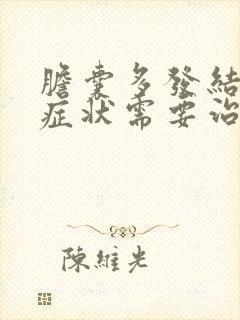 膽囊多發結
症狀需要治
陳維光